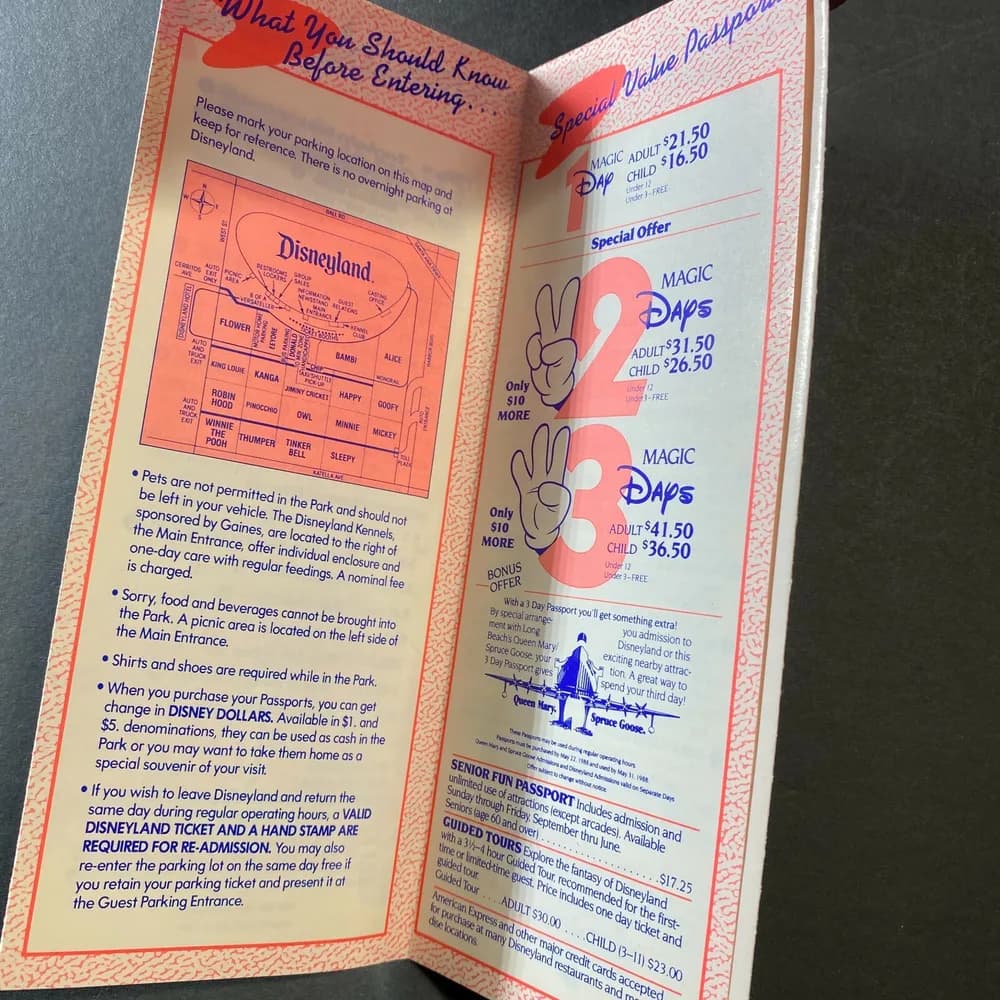 What You Should Know
Before Entering. . .
Please mark your parking location on this map and
keep for reference. There is no overnight parking at
Disneyland.
N
W
E
S
BALL RD.
WEST ST.
Disneyland.
CERRITOS
AVE
AUTO
EXIT
ONLY
PICNIC
AREA
RESTROOMS
LOCKERS
GROUP
SALES
INFORMATION
NEWSSTAND
MAIN
ENTRANCE
GUEST
RELATIONS
CASTING
OFFICE
B OF A
VERSATELLER
KENNEL
CLUB
DISNEYLAND HOTEL
FLOWER
MOTOR HOME
PARKING
EEYORE
DONALD
BAMBI
ALICE
HARBOR BLVD.
AUTO
AND
TRUCK
EXIT
KING LOUIE
KANGA
CHIP
TAXI/SHUTTLE
PICK-UP
MONORAIL
JIMINY CRICKET
HAPPY
GOOFY
AUTO
AND
TRUCK
EXIT
ROBIN
HOOD
PINOCCHIO
OWL
MINNIE
MICKEY
AUTO
ENTRANCE
WINNIE
THE
POOH
THUMPER
TINKER
BELL
SLEEPY
TOLL
PLAZA
KATELLA AVE.
• Pets are not permitted in the Park and should not
be left in your vehicle. The Disneyland Kennels,
sponsored by Gaines, are located to the right of
the Main Entrance, offer individual enclosure and
one-day care with regular feedings. A nominal fee
is charged.
• Sorry, food and beverages cannot be brought into
the Park. A picnic area is located on the left side of
the Main Entrance.
• Shirts and shoes are required while in the Park.
• When you purchase your Passports, you can get
change in DISNEY DOLLARS. Available in $1. and
$5. denominations, they can be used as cash in the
Park or you may want to take them home as a
special souvenir of your visit.
• If you wish to leave Disneyland and return the
same day during regular operating hours, a VALID
DISNEYLAND TICKET AND A HAND STAMP ARE
REQUIRED FOR RE-ADMISSION. You may also
re-enter the parking lot on the same day free if
you retain your parking ticket and present it at
the Guest Parking Entrance.
Special Value Passport
1 MAGIC DAY
ADULT $21.50
CHILD $16.50
Under 12
Under 3–FREE
Special Offer
2 MAGIC
DAYS
ADULT $31.50
CHILD $26.50
Under 12
Under 3–FREE
Only
$10
MORE
3 MAGIC
DAYS
ADULT $41.50
CHILD $36.50
Under 12
Under 3–FREE
Only
$10
MORE
BONUS
OFFER
With a 3 Day Passport you'll get something extra!
By special arrange-
ment with Long
Beach's Queen Mary/
Spruce Goose, your
3 Day Passport gives
you admission to
Disneyland or this
exciting nearby attrac-
tion. A great way to
spend your third day!
Queen Mary.
Spruce Goose.
These Passports may be used during regular operating hours.
Passports must be purchased by May 22, 1988 and used by May 31, 1988.
Queen Mary and Spruce Goose Admissions and Disneyland Admissions valid on Separate Days
Offer subject to change without notice.
SENIOR FUN PASSPORT Includes admission and
unlimited use of attractions (except arcades). Available
Sunday through Friday, September thru June.
Seniors (age 60 and over) . . . . . . . . . . . . . . . . $17.25
GUIDED TOURS Explore the fantasy of Disneyland
with a 3½–4 hour Guided Tour, recommended for the first-
time or limited-time guest. Price includes one day ticket and
guided tour.
Guided Tour . . . . ADULT $30.00 . . . . CHILD (3–11) $23.00
American Express and other major credit cards accepted
for purchase at many Disneyland restaurants and
dise locations.